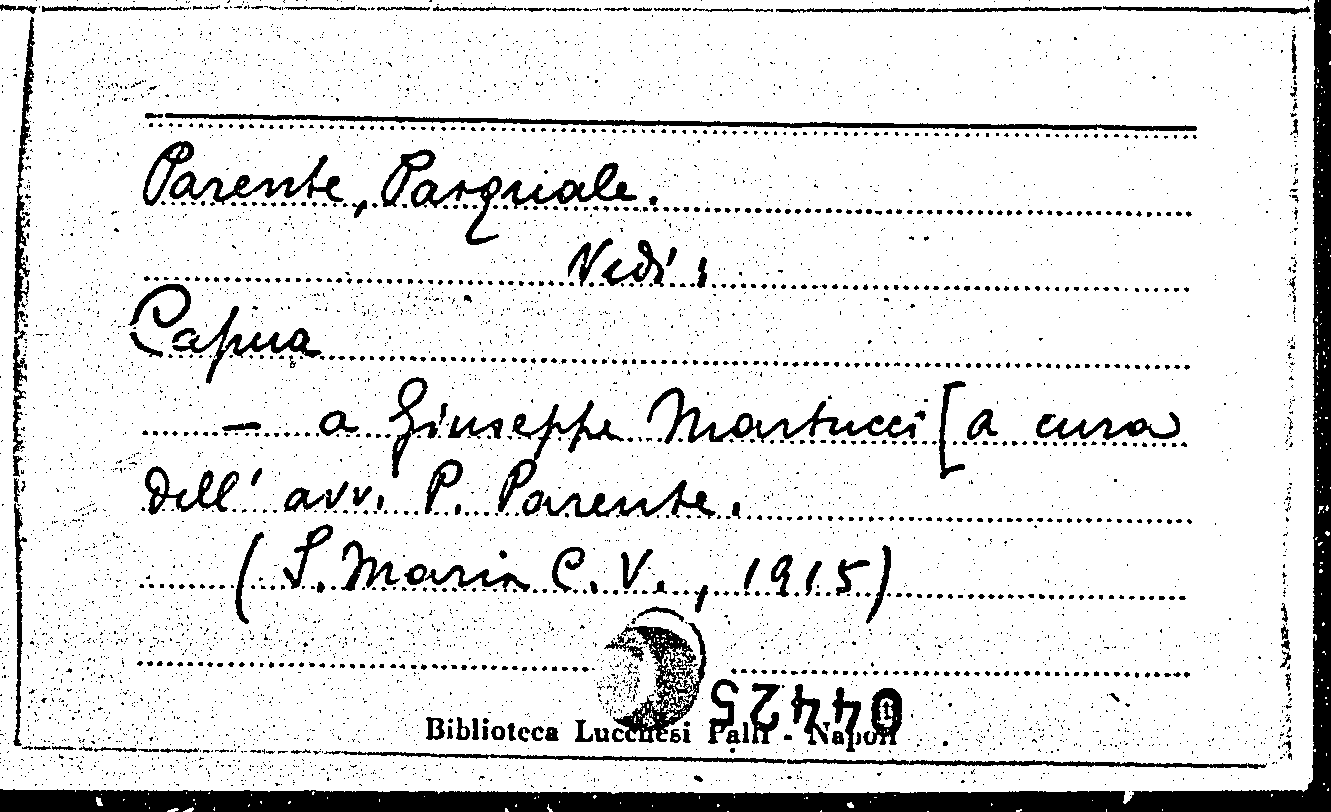 Parente, Pasquale.
Vedi:
Capua
— a Giuseppe Martucci [a cura
dell' avv. P. Parente.
(S. Maria C. V., 1915)
04425
Biblioteca Lucchesi Palli - Napoli